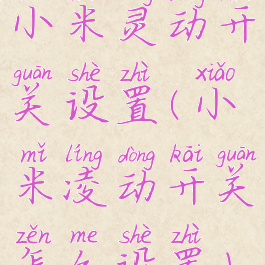 小米灵动开
guān shè zhì xiǎo
关设置(小
mǐ líng dòng kāi guān
米凌动开关
zěn me shè zhì
怎么设置)